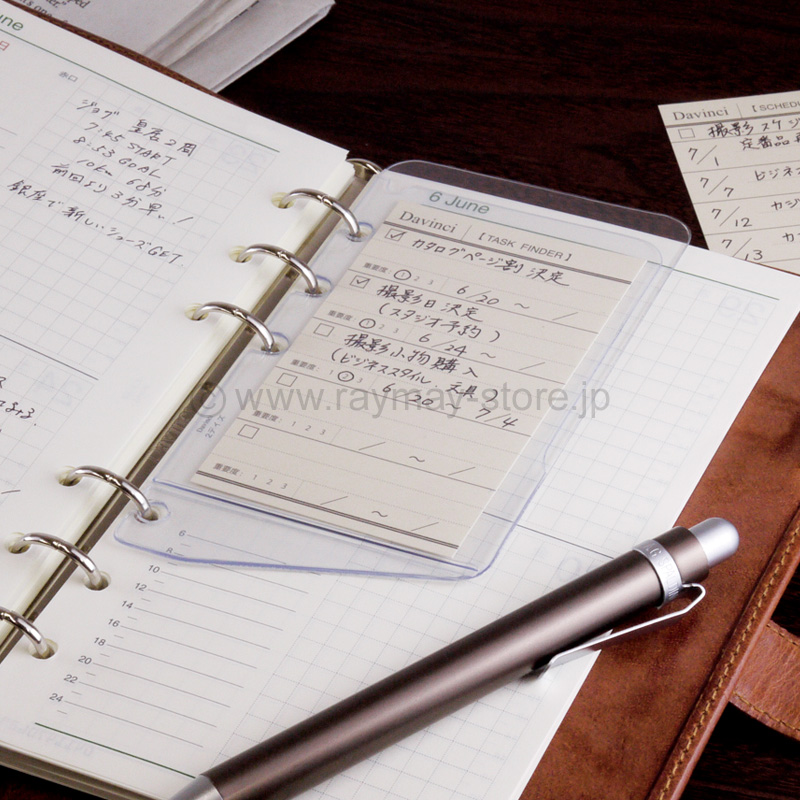 June
赤口
ジョグ 皇居2周
7:45 START
8:53 GOAL
10km 68分
前回より3分早い!
銀座で新しいシューズGET.
6 June
Davinci 【 TASK FINDER 】
カタログページ割決定
重要度: 1 2 3 6/20 ~ /
撮影日決定
(スタジオ予約)
重要度: 1 2 3 6/24 ~ /
撮影小物購入
(ビジネススタイル 文具)
重要度: 1 2 3 6/20 ~ 7/4
重要度: 1 2 3 / ~ /
重要度: 1 2 3 / ~ /
Davinci 【 SCHEDU
撮影スケジ
7/1 定番品
7/7 ビジネス
7/12 カジ
7/13 カ
© www.raymay-store.jp
6
8
10
12
14
16
18
20
22
24